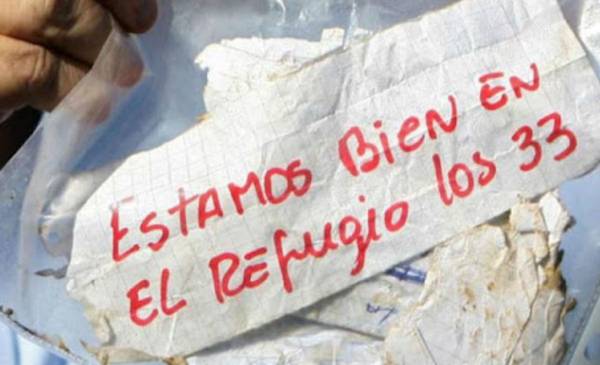 ESTAMOS BiEN EN
EL REfugio los 33